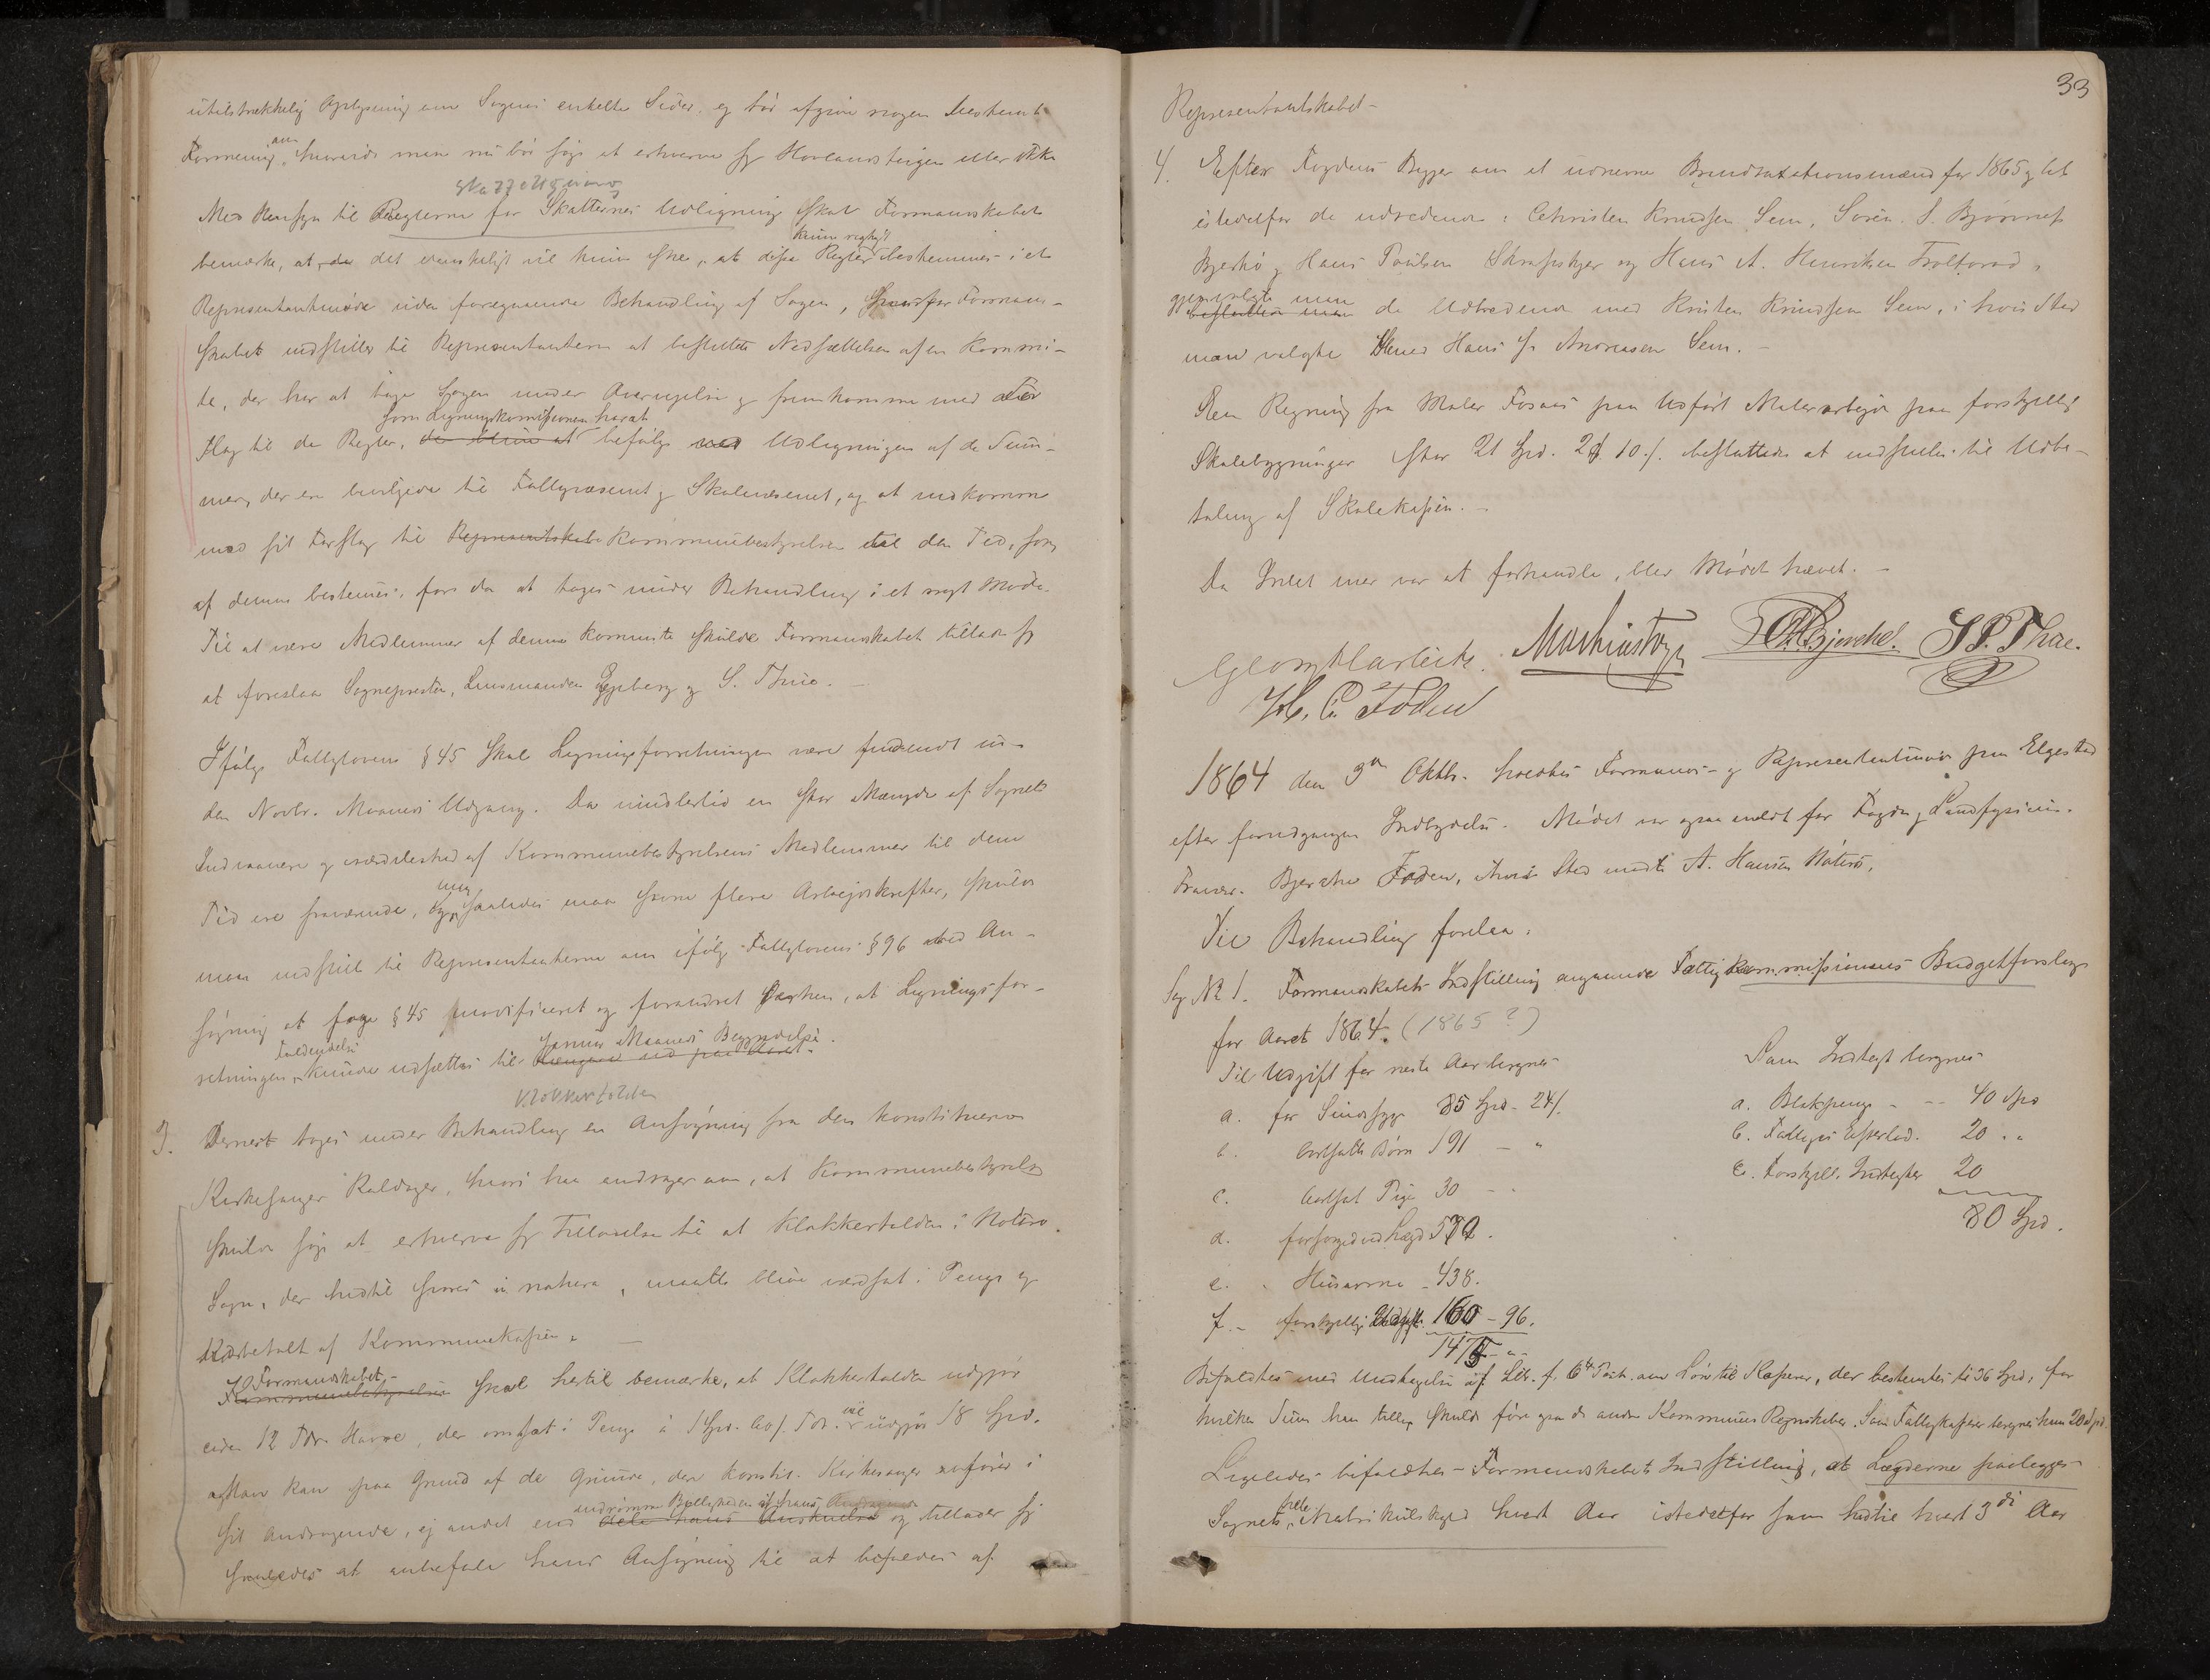 utilstrækkelig Oplysning om Sagens enkelte Sider, og bør afgive nogen bestemt
Formening om, hvorvidt man nu bør søge at erhverve sig Havlandsteigen eller ikke
Skatteligning
Med Hensyn til Reglerne for Skatternes Udligning skal Formandskabet
bemærke, at da det vanskeligt vil kunne skee, at disse Regler kunne rigtigt bestemmes i et
Representantmøde uden foregaaende Behandling af Sagen, hvorfor Formand-
skabet indstiller til Representanterne at beslutte Nedsættelsen af en Kommi-
te, der har at tage Sagen under Overveielse og fremkomme med et For
slag til de Regler, de bliver at som Ligningskommissionen har at befølge ved Udligningen af de Sum-
mer, der ere bevilgede til Fattigvæsenet og Skolevæsenet, og at indkomme
med sit Forslag til Representantskabet Kommunebestyrelsen til den Tid, som
af denne bestemmes, for da at tages under Behandling i et nyt Møde.
Til at være Medlemmer af denne Kommite skulde Formandskabet tillade sig
at foreslaa Sognepresten, Lensmanden Egeberg og S. Thue. –
Ifølge Fattigloven § 45 skal Ligningsforretningen være fuldendt in-
den Novbr. Maaneds Udgang. Da imidlertid en stor Mængde af Sognets
Indvaanere og isærdeleshed af Kommunebestyrelsens Medlemmer til denne
Tid ere fraværende, og man saaledes maa savne flere Arbeidskræfter, skulde
man indstille til Representanterne om ifølge Fattiglovens § 96 ved An-
søgning at faae § 45 modificeret og forandret derhen, at Ligningsfor-
retningen Fuldendelse kunde udsættes til længere ud paa Aaret. Januar Maaneds Begyndelse.
Klokkertolden
3. Dernest toges under Behandling en Ansøgning fra den konstituerede
Kirkesanger Raldager, hvori han andrager om, at Kommunebestyrelsen
skulde søge at erhverve sig Tilladelse til at Klokkertolden i Nøterø
Sogn, der hidtil svares in natura, maatte blive værdsat i Penge og
udbetalt af Kommunekassen. –
Kommunebestyrelsen Formandskabet skal hertil bemærke, at Klokkertolden udgjør
circa 12 Tdr. Havre, der omsat i Penge à 1 Spd. 60 s. Td. vil udgjøre 18 Spd.
Man kan paa Grund af de Grunde, den konstit. Kirkesanger anfører i
sit Andragende, ej andet end dele hans Anskuelse indrømme Billigheden af hans Andragende og tillader sig
saaledes at anbefale hans Ansøgning til at bifaldes af
33
Representantskabet –
4. Efter Fogdens Begjær om at udnævne Brandtaxationsmænd for 1865 og lit
istedetfor de udtrædende: Christen Knudsen Sem, Søren S. Bjørnnes
Bjerkø, Hans Paulsen Skrapskjer og Hans A. Henriksen Tolfsrød,
besluttede man gjenvalgte man de Udtrædende med Kristen Knudsen Sem, i hvis Sted
man valgte Hans Jr. Andreasen Sem. –
Een Regning fra Maler Fosnes paa udført Malerarbeide paa forskjellige
Skolebygninger stor 21 Spd. 2 10 s. besluttedes at indstilles til Udbe-
taling af Skolekassen. –
Da Intet mer var at forhandle, blev Mødet hævet. –
Mathias Foyn O. Bjerche. S. P. Thue.
H. C. Foden
1864 den 3die Oktbr. holdtes Formands- og Representantmøde paa Elgestad
efter forudgangen Indbydelse. Mødet var ogsaa anmeldt for Fogden og Landfysicus.
Fravær. Bjerche Foden, i hvis Sted mødte A. Hansen Nøterø.
Til Behandling forelaa:
Sag No 1. Formandskabets Indstilling angaaende Fattigkommissionens Budgetforslag
for Aaret 1864. (1865 ?)
Til Udgift for næste Aar beregnes
Som Indtægt beregnes
a. for Sindssyge 85 Spd. 24 s.
a. Blokpenge – -- 40 Spd
b. bortsatte Børn 191 – "
b. Fattiges Efterlad. 20 . "
c. bortsat Pige 30 – .
c. Forskjell. Indtægter 20
d. forsørged ved Lægd 570.
80 Spd.
e. " Husarme – 438.
f. – forskjellige Udgift. 160 – 96.
1475 – " –
Bifaldtes med Undtagelse af Litr. f. 6te Post. om Løn til Kasserer, der bestemtes til 36 Spd., for
hvilken Sum han tillige skulde føre ogsaa de andre Kommunens Regnskaber. Som Fattigkasserer beregnes ham 20 Spd.
Ligeledes bifaldtes – Formandskabets Indstilling, at Lægderne paalægges
Sognets hele Matrikulskyld hvert Aar istedetfor som hidtil hvert 3die Aar